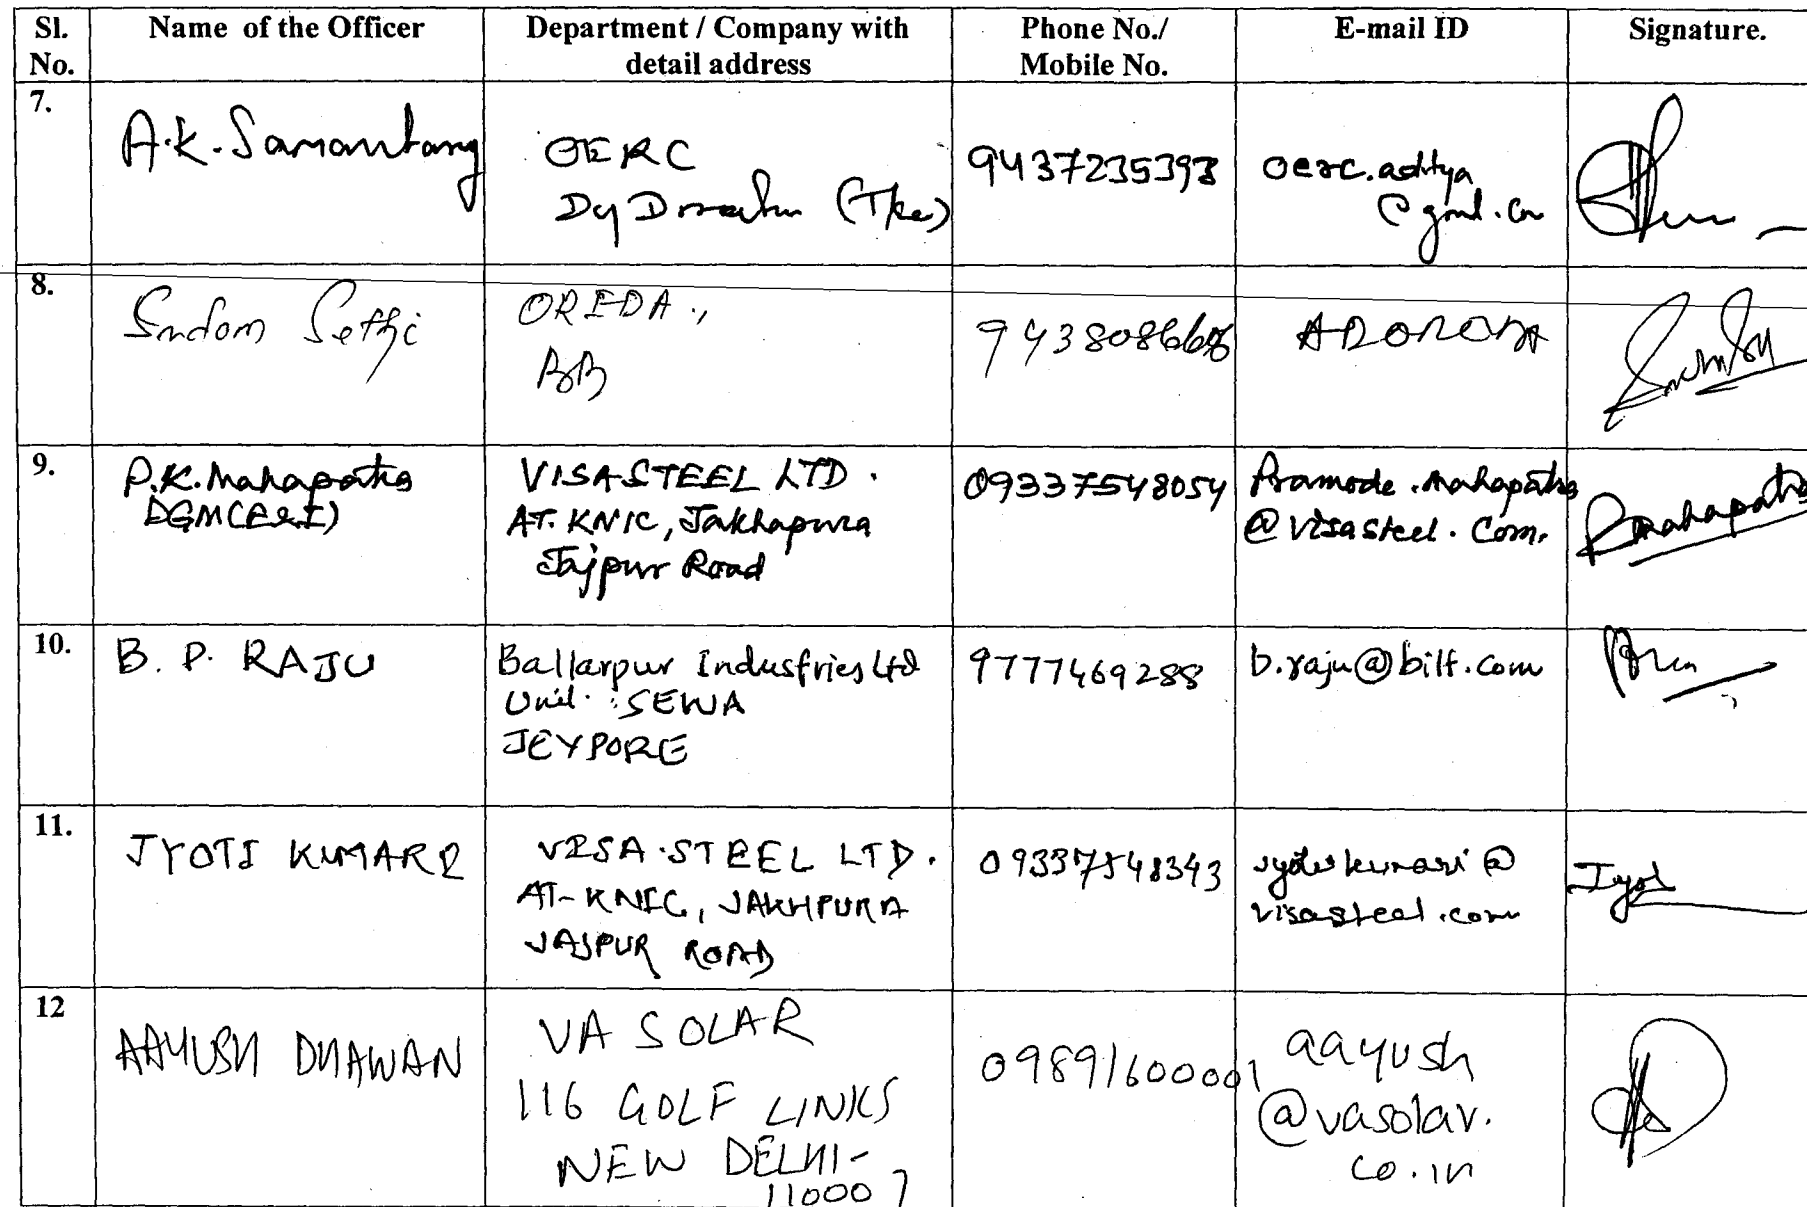 Sl. No. Name of the Officer Department / Company with detail address Phone No./ Mobile No. E-mail ID Signature.
7.
A.K. Samantaray
OERC
9437235393
oerc.aditya
@gml.com
8.
Sudam Sethi
OREDA.,
9438086
9.
P.K. Mahapatra
DGM(E&I)
VISA STEEL LTD.
AT. KNIC, Jakhapura
Jajpur Road
09337548054
Pramode.mahapatra
@visasteel.com.
Pmahapatra
10.
B. P. RAJU
Ballarpur Industries Ltd
Unit : SEWA
JEYPORE
9777469288
b.raju@bilt.com
11.
JYOTI KUMARI
VISA STEEL LTD.
AT- KNIC, JAKHPURA
JAJPUR ROAD
09337548343
jyoti.kumari@
visasteel.com
Jyoti
12
AAYUSH DHAWAN
VA SOLAR
116 GOLF LINKS
NEW DELHI-
110007
09891600001
aayush
@vasolar.
co.in